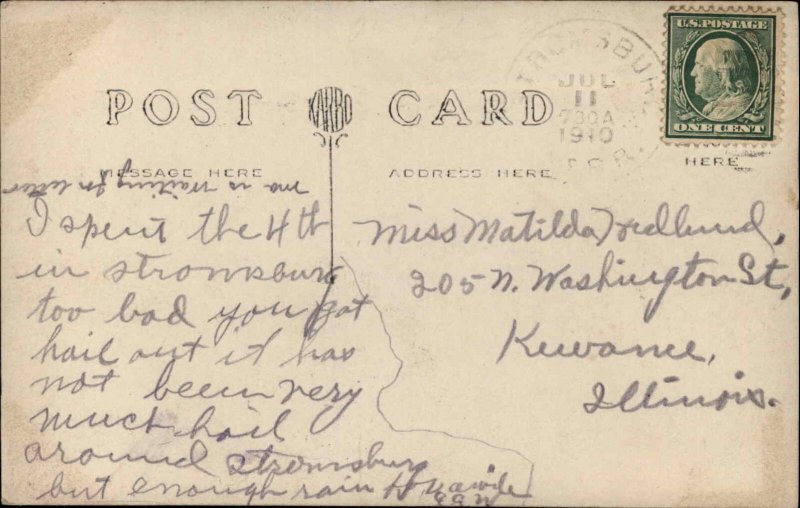 U.S. POSTAGE
ONE CENT
STROMSBURG
JUL
11
730A
1910
POST KARBO CARD
MESSAGE HERE
ADDRESS HERE
HERE
ma is waiting for letter
I spent the 4th
in stromsburg
too bad you got
hail out it has
not been very
much hail
around stromsburg
but enough rain
Miss Matilda Fredlund,
205 N. Washington St,
Kewanee,
Illinois.